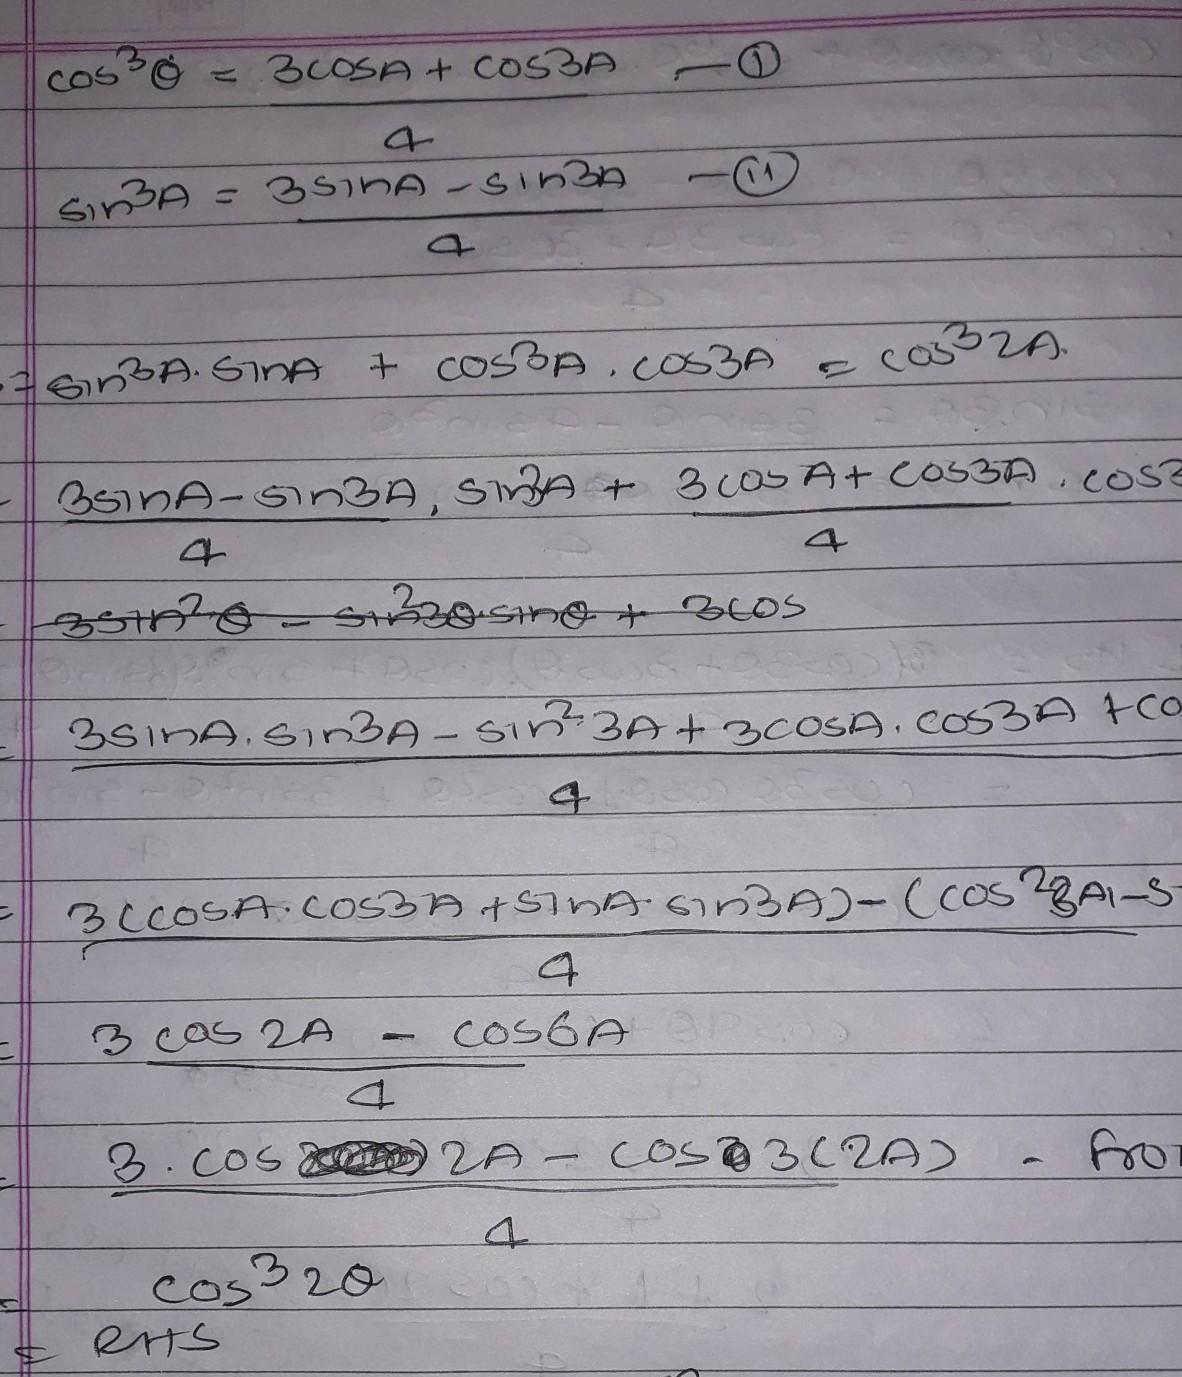 cos³θ = 3cosA + cos3A —①
4
sin³A = 3sinA - sin3A —(ii)
4
⇒ sin³A. sinA + cos³A . cos3A = cos³2A.
= 3sinA - sin3A, sin3A + 3cosA + cos3A . cos3
4 4
= 3sin²θ - sin²3θ.sinθ + 3cos
= 3sinA. sin3A - sin²3A + 3cosA. cos3A + co
4
= 3(cosA. cos3A + sinA. sin3A) - (cos²3A - s
4
= 3 cos2A - cos6A
4
= 3. cos 2A - cos 3(2A) - fro
4
= cos³2θ
= RHS